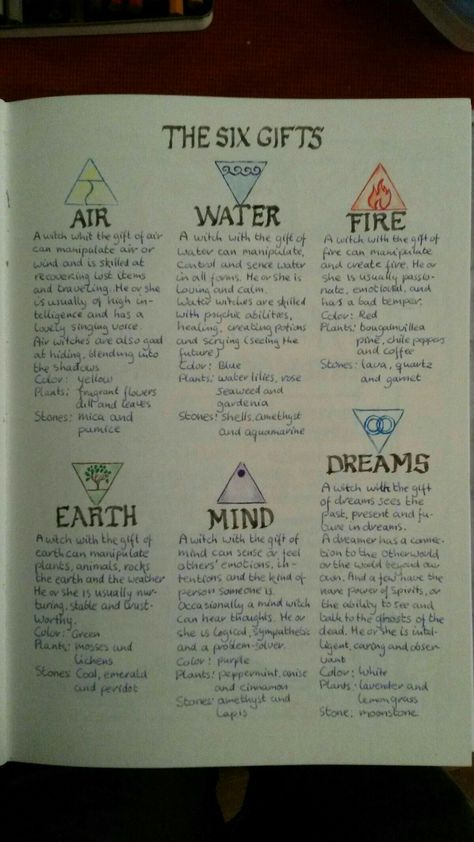 THE SIX GIFTS
AIR
A witch whit the gift of air
can manipulate air or
wind and is skilled at
recovering lost items
and traveling. He or she
is usually of high in-
telligence and has a
lovely singing voice.
Air witches are also good
at hiding, blending into
the shadows
Color: yellow
Plants: fragrant flowers
dill and leaves
Stones: mica and
pumice
WATER
A witch with the gift of
Water can manipulate,
control and sence water
in all forms. He or she is
Loving and calm.
Water witches are skilled
with psychic abilities,
healing, creating potions
and scrying (seeing the
future)
Color: Blue
Plants: water lilies, rose
seaweed and
gardenia
Stones: Shells, amethyst
and aquamarine
FIRE
A witch with the gift of
fire can manipulate
and create fire. He or
she is usually passio-
nate, emotional, and
has a bad temper.
Color: Red
Plants: bougainvillea
pine, chile peppers
and coffee
Stones: lava, quartz
and garnet
EARTH
A witch with the gift of
earth can manipulate
plants, animals, rocks
the earth and the weather
He or she is usually nur-
turing, stable and trust-
worthy.
Color: Green
Plants: mosses and
lichens
Stones: Coal, emerald
and peridot
MIND
A witch with the gift of
mind can sense or feel
others' emotions, in-
tentions and the kind of
person someone is.
Occasionally a mind witch
can hear thoughts. He or
she is logical, sympathetic
and a problem-solver.
Color: purple
Plants: peppermint, anise
and cinnamon
Stones: amethyst and
Lapis
DREAMS
A witch with the gift
of dreams sees the
past, present and fu-
ture in dreams.
A dreamer has a conne-
tion to the Otherworld
or the world beyond our
own. And a few have the
rare power of Spirits, or
the ability to see and
talk to the ghosts of the
dead. He or she is intel-
ligent, caring and obser-
vant
Color: White
Plants: lavender and
lemongrass
Stone: moonstone